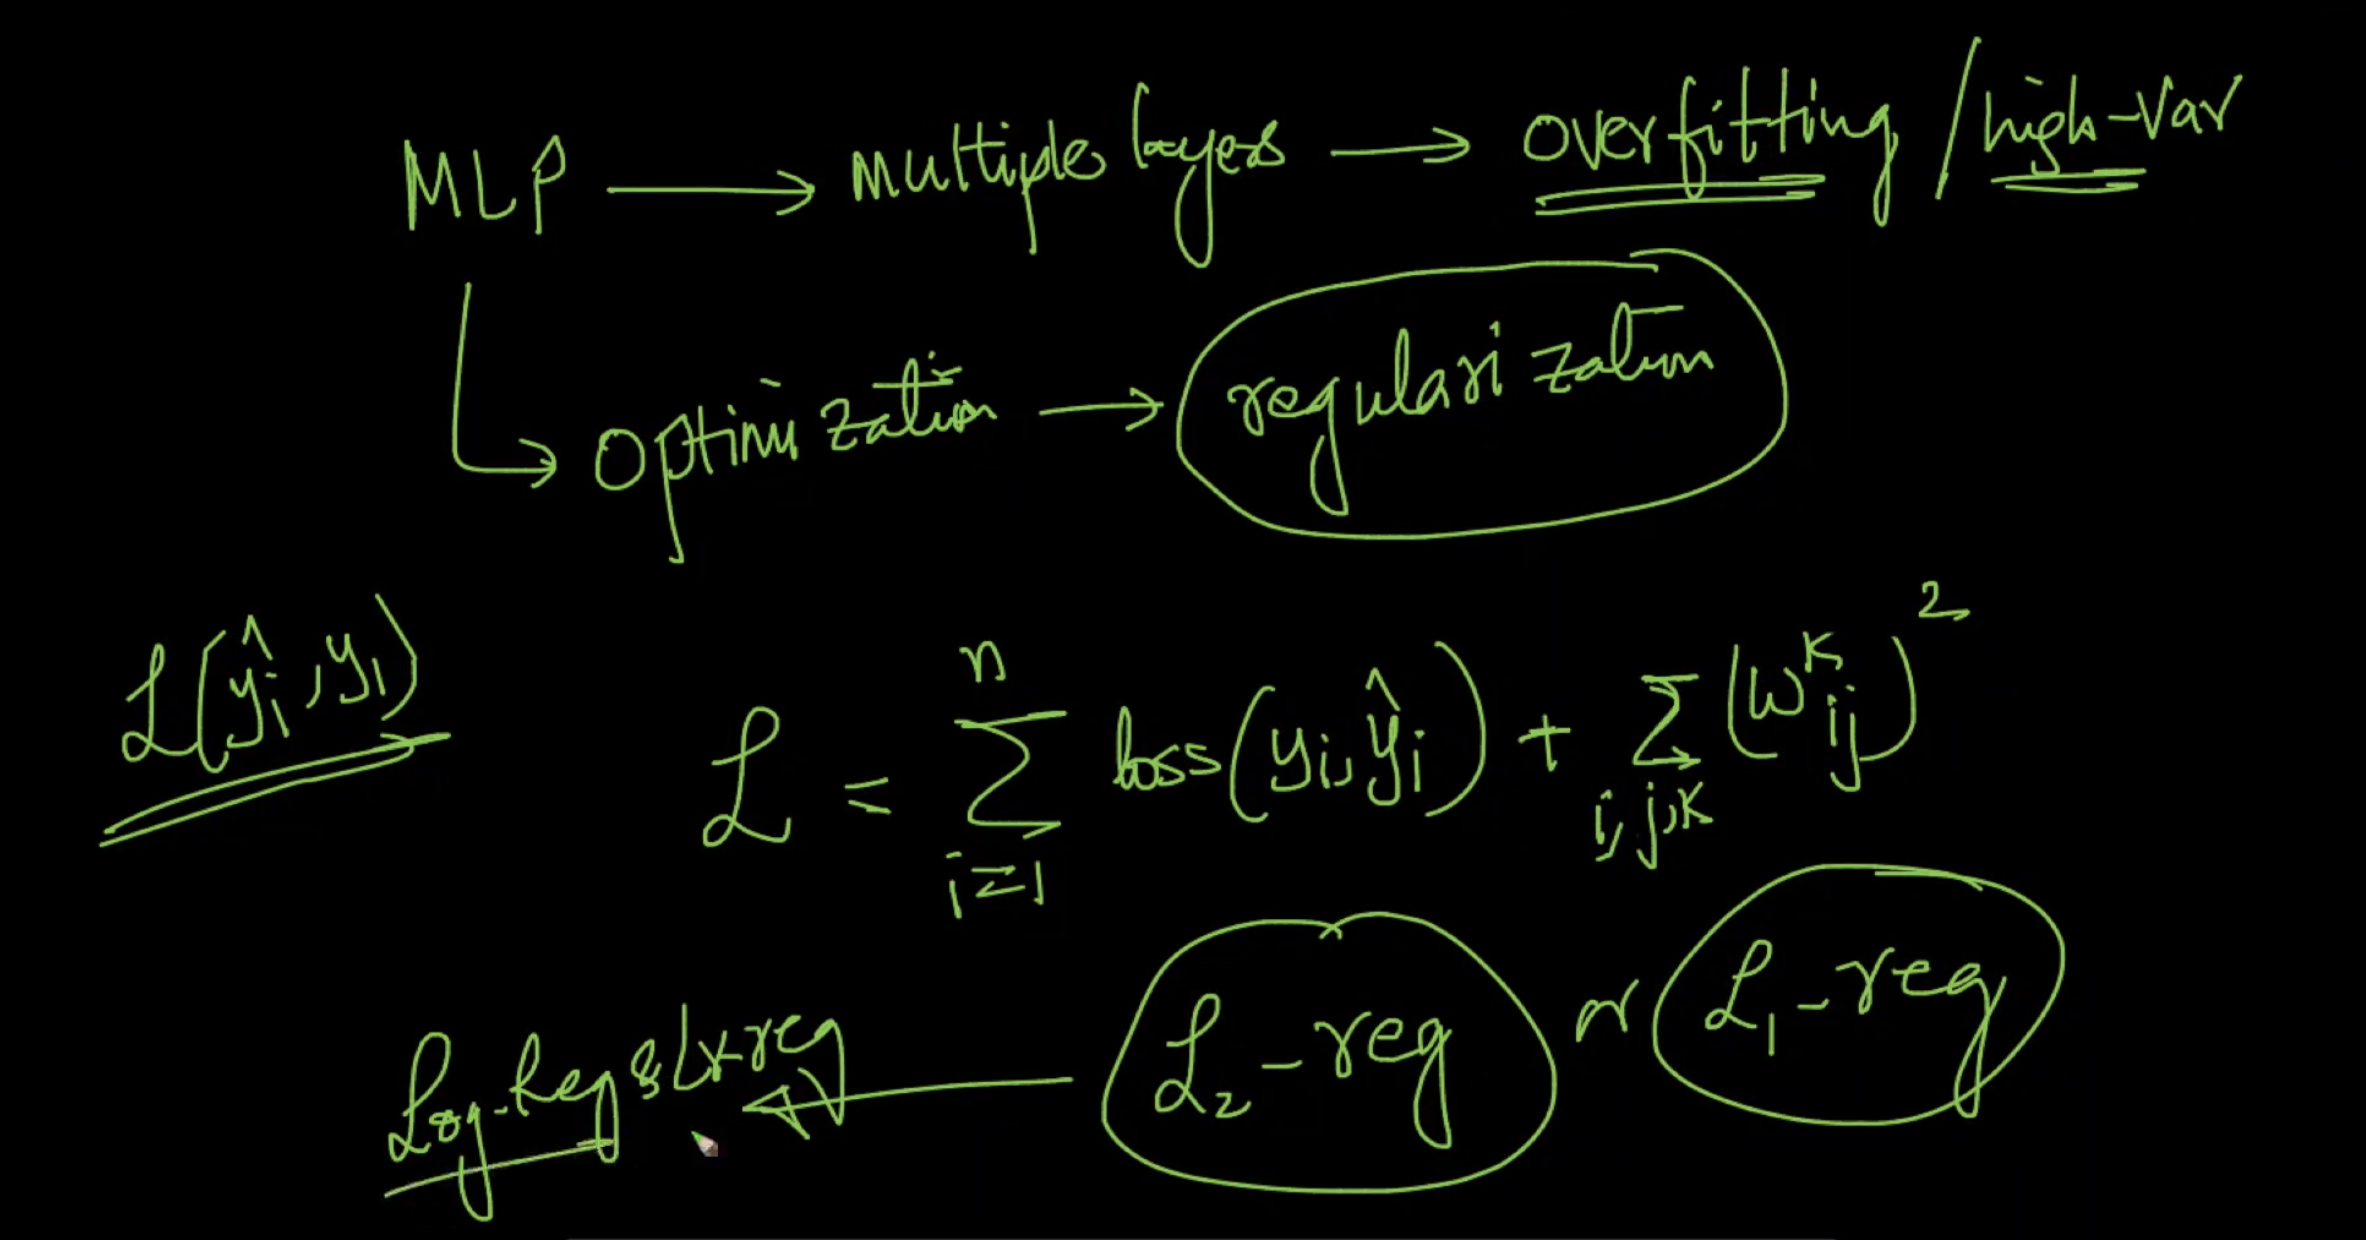 MLP → Multiple layers → overfitting / high-var
↳ optimization → regularization
ℒ(ŷᵢ, yᵢ)
ℒ = Σⁿᵢ₌₁ loss(yᵢ, ŷᵢ) + Σ i,j,k (wᵏᵢⱼ)²
L₂-reg or L₁-reg
Log-Reg & L